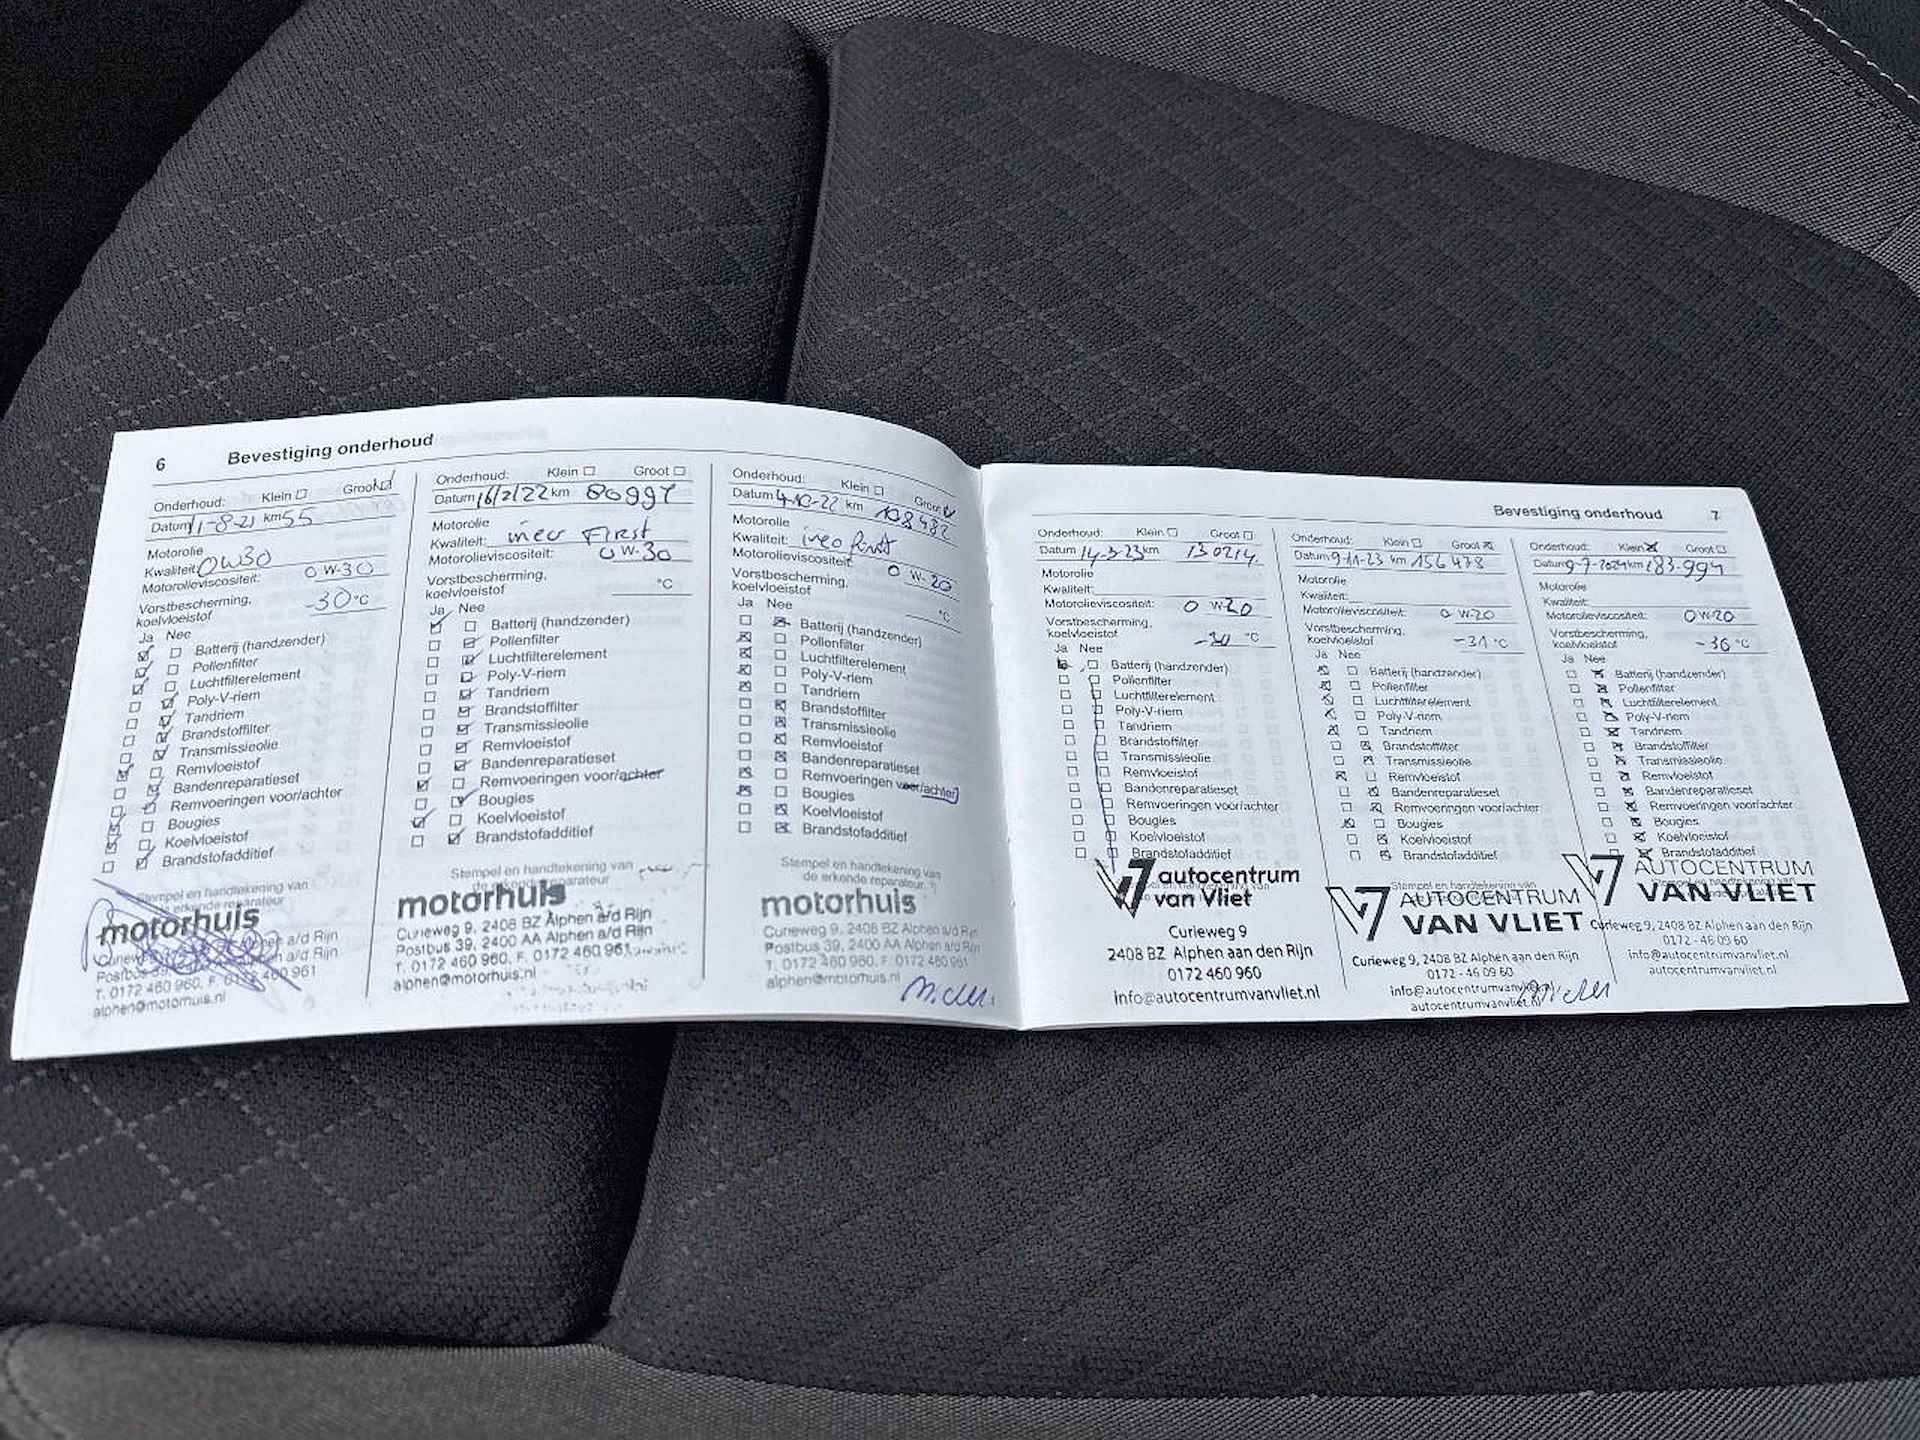 6 Bevestiging onderhoud
Onderhoud: Klein Groot
Datum 11-8-21 km 55
Motorolie
Kwaliteit: 0W30
Motorolieviscositeit: 0 W-30
Vorstbescherming,
koelvloeistof -30 °C
Ja Nee
Batterij (handzender)
Pollenfilter
Luchtfilterelement
Poly-V-riem
Tandriem
Brandstoffilter
Transmissieolie
Remvloeistof
Bandenreparatieset
Remvoeringen voor/achter
Bougies
Koelvloeistof
Brandstofadditief
Stempel en handtekening van
de erkende reparateur
motorhuis
T. 0172 460 960, F. 0172 460 961
alphen@motorhuis.nl
Onderhoud: Klein Groot
Datum 16/2/22 km 80997
Motorolie
Kwaliteit: ineo First
Motorolieviscositeit: 0 W-30
Vorstbescherming,
koelvloeistof °C
Ja Nee
Batterij (handzender)
Pollenfilter
Luchtfilterelement
Poly-V-riem
Tandriem
Brandstoffilter
Transmissieolie
Remvloeistof
Bandenreparatieset
Remvoeringen voor/achter
Bougies
Koelvloeistof
Brandstofadditief
Stempel en handtekening van
de erkende reparateur
motorhuis
Curieweg 9, 2408 BZ Alphen a/d Rijn
Postbus 39, 2400 AA Alphen a/d Rijn
T. 0172 460 960, F. 0172 460 961
alphen@motorhuis.nl
Onderhoud: Klein Groot
Datum 4-10-22 km 108482
Motorolie
Kwaliteit: ineo first
Motorolieviscositeit: 0 W-20
Vorstbescherming,
koelvloeistof °C
Ja Nee
Batterij (handzender)
Pollenfilter
Luchtfilterelement
Poly-V-riem
Tandriem
Brandstoffilter
Transmissieolie
Remvloeistof
Bandenreparatieset
Remvoeringen voor/achter
Bougies
Koelvloeistof
Brandstofadditief
Stempel en handtekening van
de erkende reparateur
motorhuis
Curieweg 9, 2408 BZ Alphen a/d Rijn
Postbus 39, 2400 AA Alphen a/d Rijn
T. 0172 460 960, F. 0172 460 961
alphen@motorhuis.nl
Bevestiging onderhoud 7
Onderhoud: Klein Groot
Datum 14-3-23 km 130214
Motorolie
Kwaliteit:
Motorolieviscositeit: 0 W-20
Vorstbescherming,
koelvloeistof -30 °C
Ja Nee
Batterij (handzender)
Pollenfilter
Luchtfilterelement
Poly-V-riem
Tandriem
Brandstoffilter
Transmissieolie
Remvloeistof
Bandenreparatieset
Remvoeringen voor/achter
Bougies
Koelvloeistof
Brandstofadditief
autocentrum
van Vliet
Curieweg 9
2408 BZ Alphen aan den Rijn
0172 460 960
info@autocentrumvanvliet.nl
Onderhoud: Klein Groot
Datum 9-11-23 km 156478
Motorolie
Kwaliteit:
Motorolieviscositeit: 0 W-20
Vorstbescherming,
koelvloeistof -31 °C
Ja Nee
Batterij (handzender)
Pollenfilter
Luchtfilterelement
Poly-V-riem
Tandriem
Brandstoffilter
Transmissieolie
Remvloeistof
Bandenreparatieset
Remvoeringen voor/achter
Bougies
Koelvloeistof
Brandstofadditief
Stempel en handtekening van
AUTOCENTRUM
VAN VLIET
Curieweg 9, 2408 BZ Alphen aan den Rijn
0172 - 46 09 60
info@autocentrumvanvliet.nl
autocentrumvanvliet.nl
Onderhoud: Klein Groot
Datum 9-7-2024 km 183-994
Motorolie
Kwaliteit:
Motorolieviscositeit: 0 W-20
Vorstbescherming,
koelvloeistof -36 °C
Ja Nee
Batterij (handzender)
Pollenfilter
Luchtfilterelement
Poly-V-riem
Tandriem
Brandstoffilter
Transmissieolie
Remvloeistof
Bandenreparatieset
Remvoeringen voor/achter
Bougies
Koelvloeistof
Brandstofadditief
AUTOCENTRUM
VAN VLIET
Curieweg 9, 2408 BZ Alphen aan den Rijn
0172 - 46 09 60
info@autocentrumvanvliet.nl
autocentrumvanvliet.nl